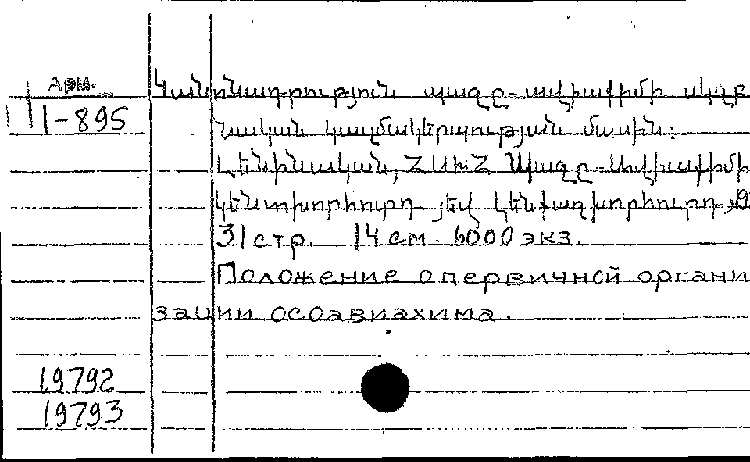 Арм.
Կանոնադրություն պազը-ավիաքիմի սկզբ
11-895
նական կազմակերպության մասին:
Լենինական, ՀՍԽՀ Պազը-Ավիաքիմի
կենտխորհուրդ յեվ
31 стр. 14 см. 6000 экз.
Положение о первичной органи
зации осоавиахима.
19792
19793